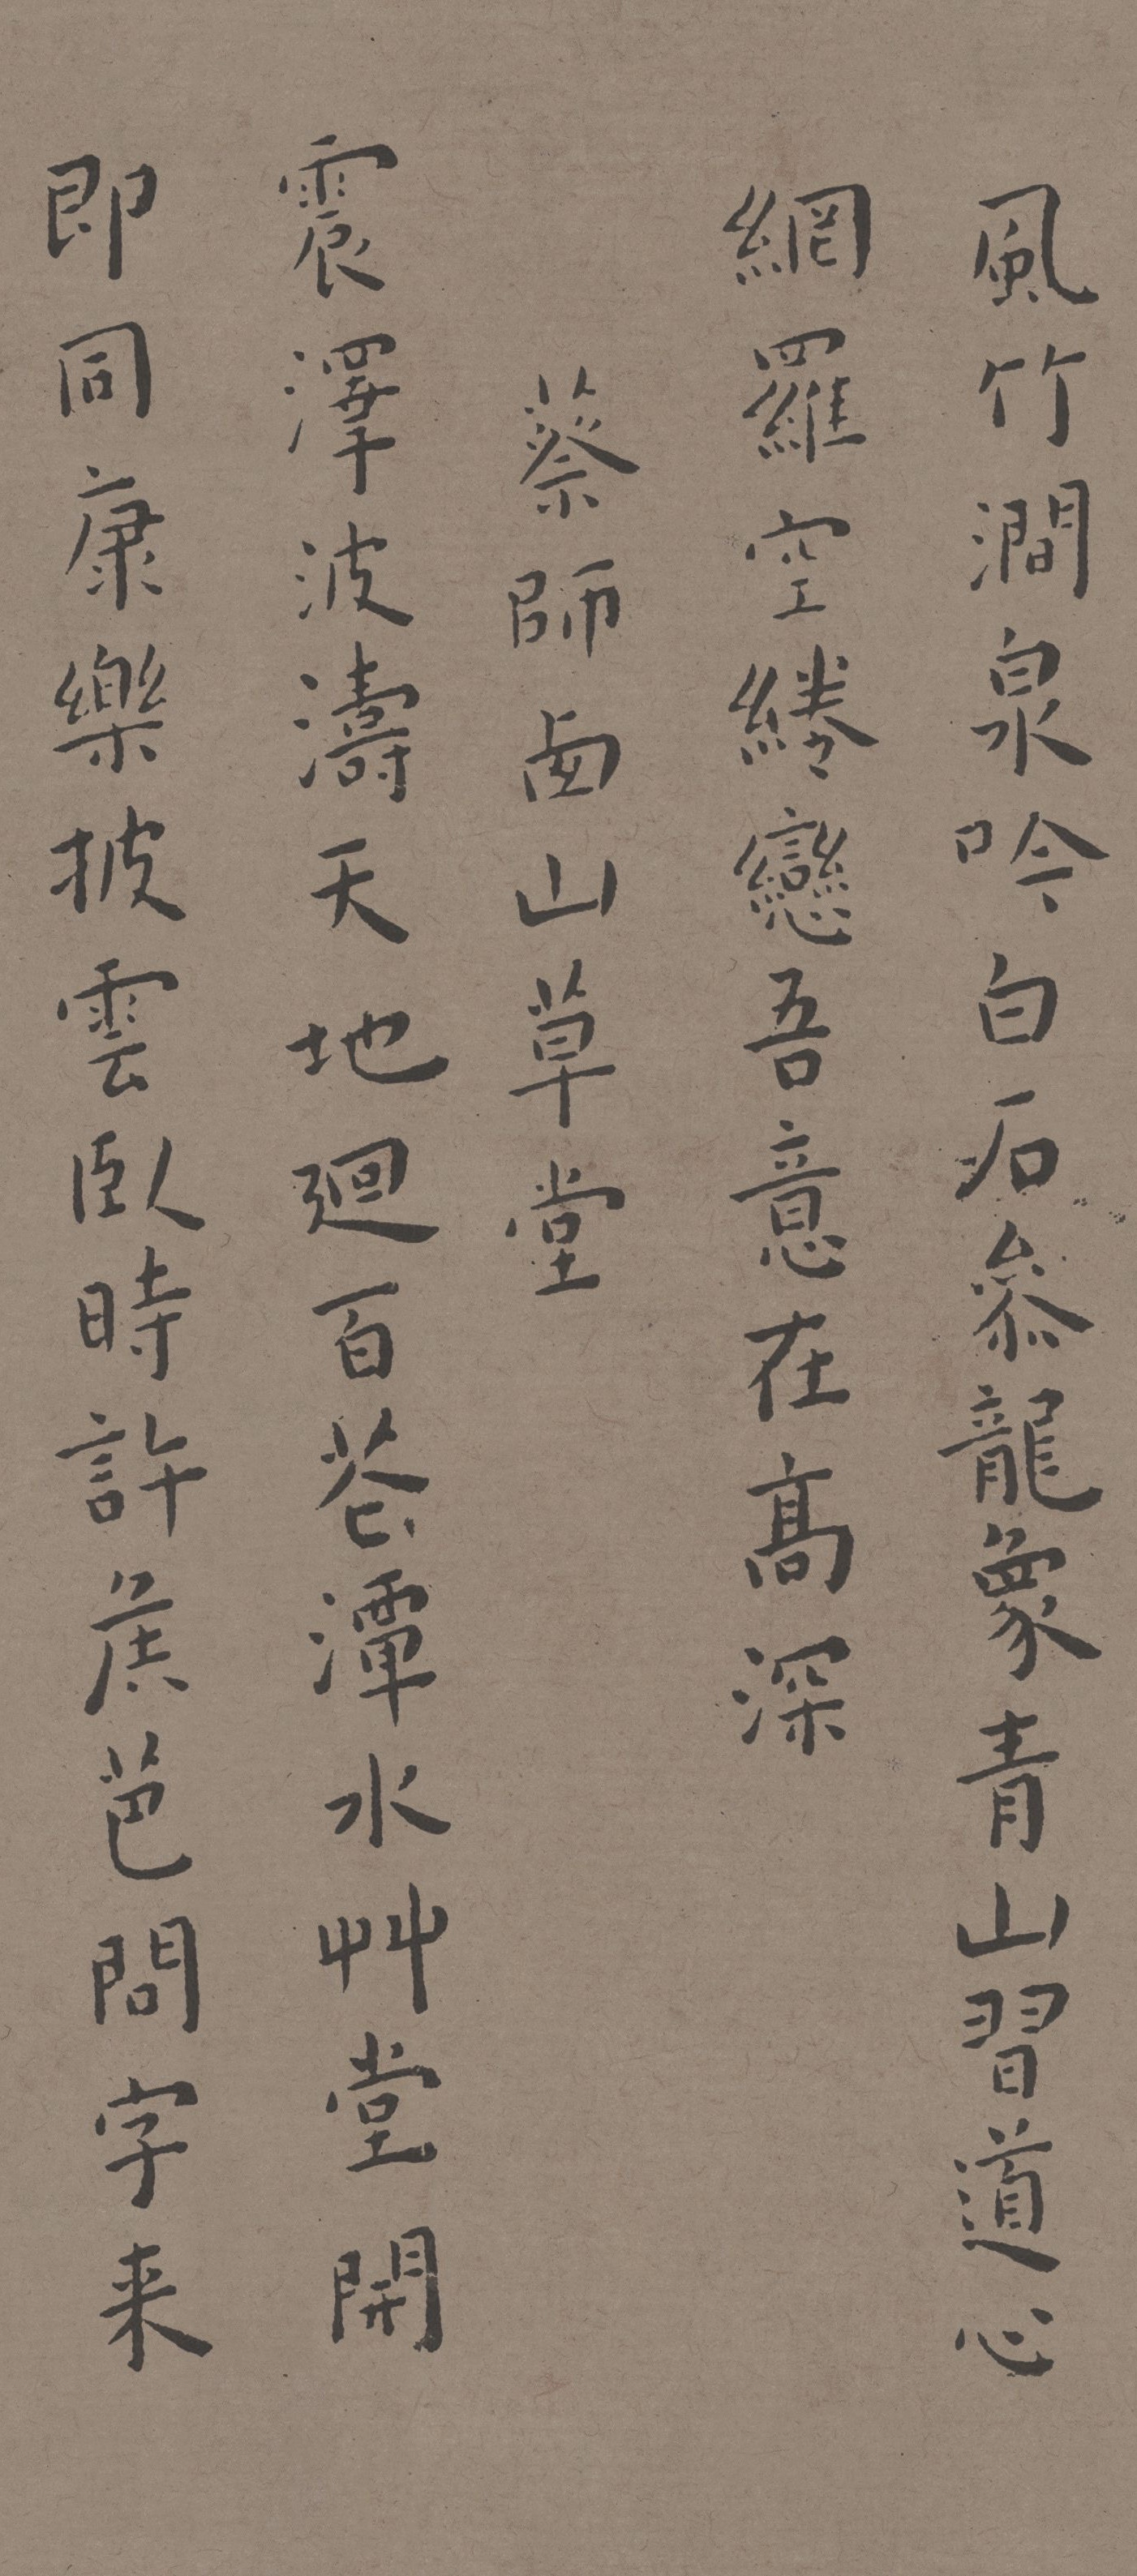 風竹澗泉吟白石參龍象青山習道心
網羅空綣戀吾意在高深
蔡師西山草堂
震澤波濤天地迴百花潭水艸堂開
即同康樂披雲臥時許侯芭問字来